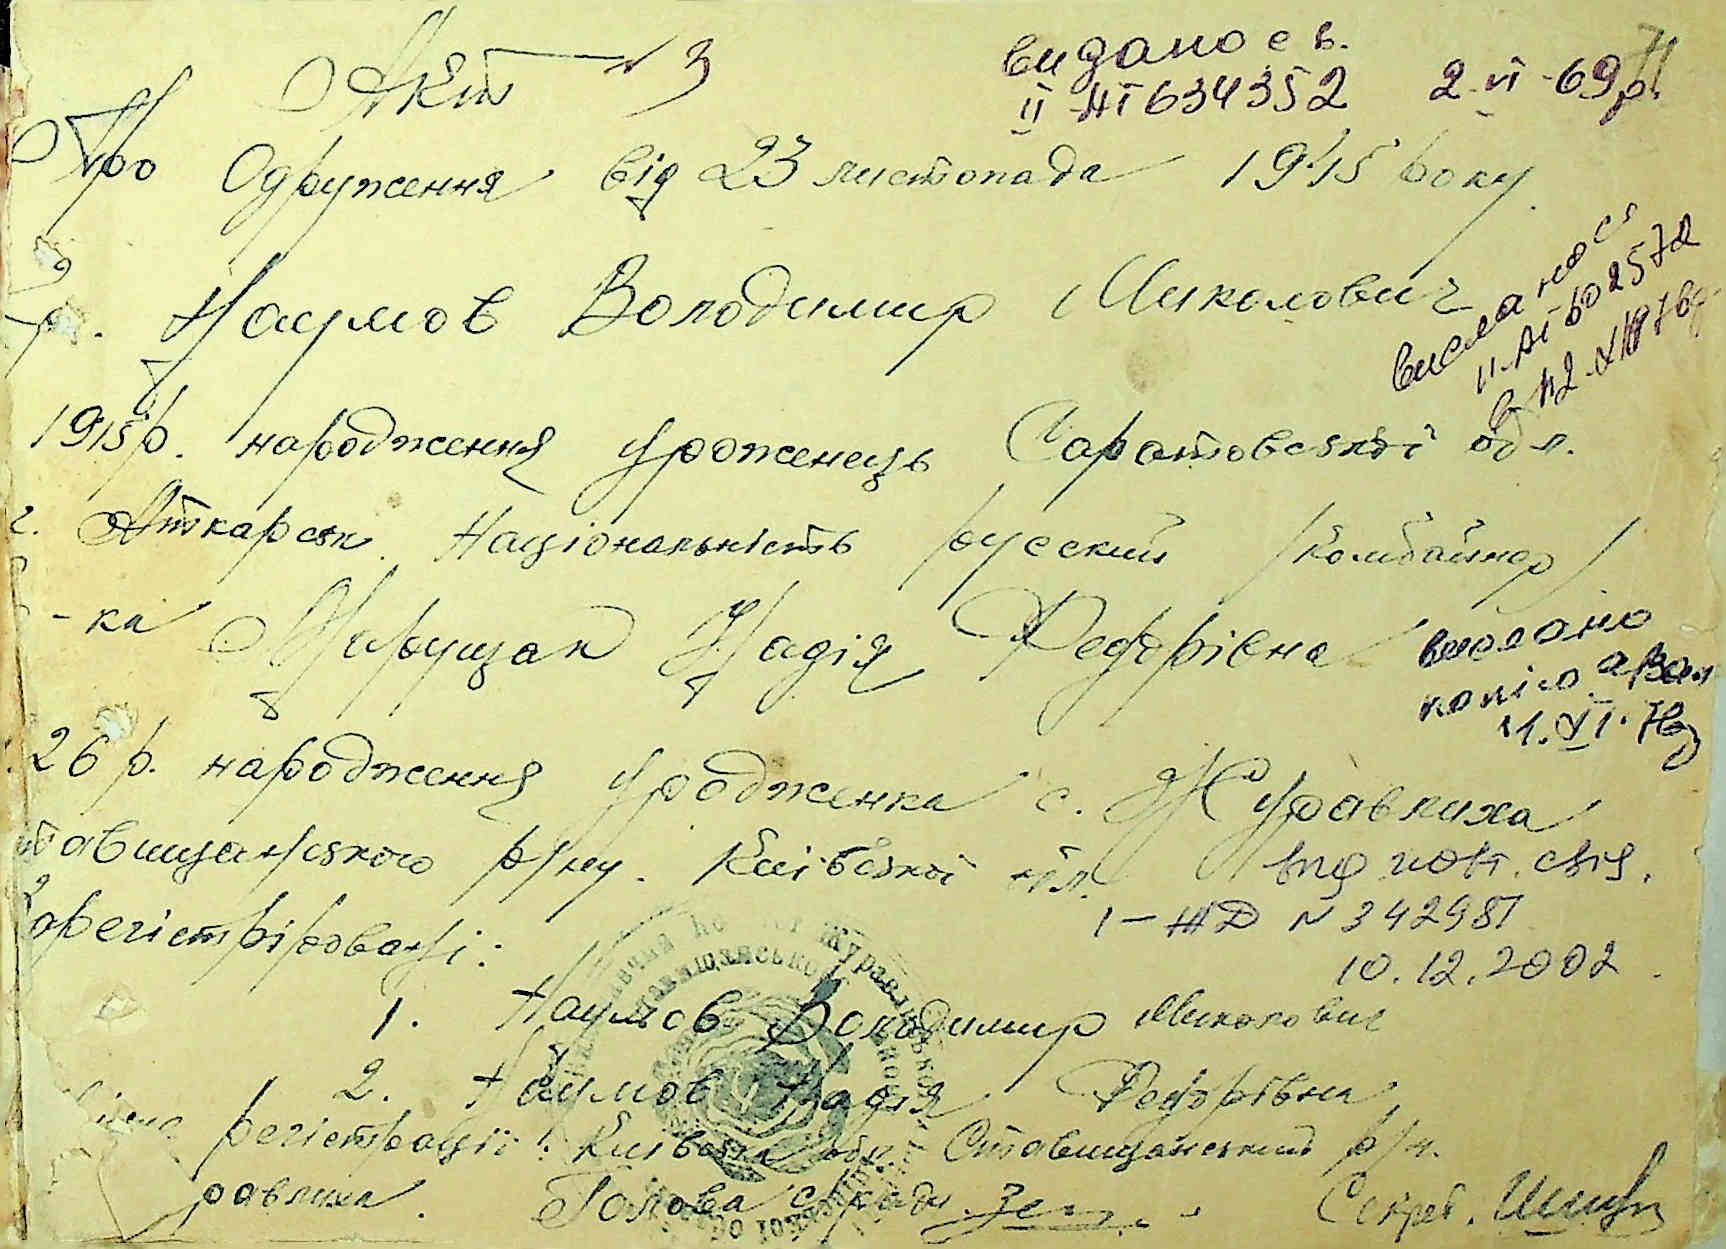 Акт № 3
видано св.
II-НІ 634352 2-VI-69р.
71
Про Одруження від 23 листопада 1945 року.
р. Наумов Володимир Миколович
вислано св
II-АІ-602572
1915р. народження уроженець Саратовської обл.
г. Аткарськ. Національність русский /комбайнер/
-ка Марущак Надія Федорівна
вислано
копію
11.XI.
26 р. народження уродженка с. Журавлиха
тавищанського р/ну. Київської обл.
вид повт. свід.
I-ЖД № 342987
10.12.2002
зарегістріровані:
1. Наумов Володимир Миколович
2. Наумов Надія Федорівна
регістрації: Київська обл. Ставищанський р/н.
равлиха. Голова с/ради. Секрет.